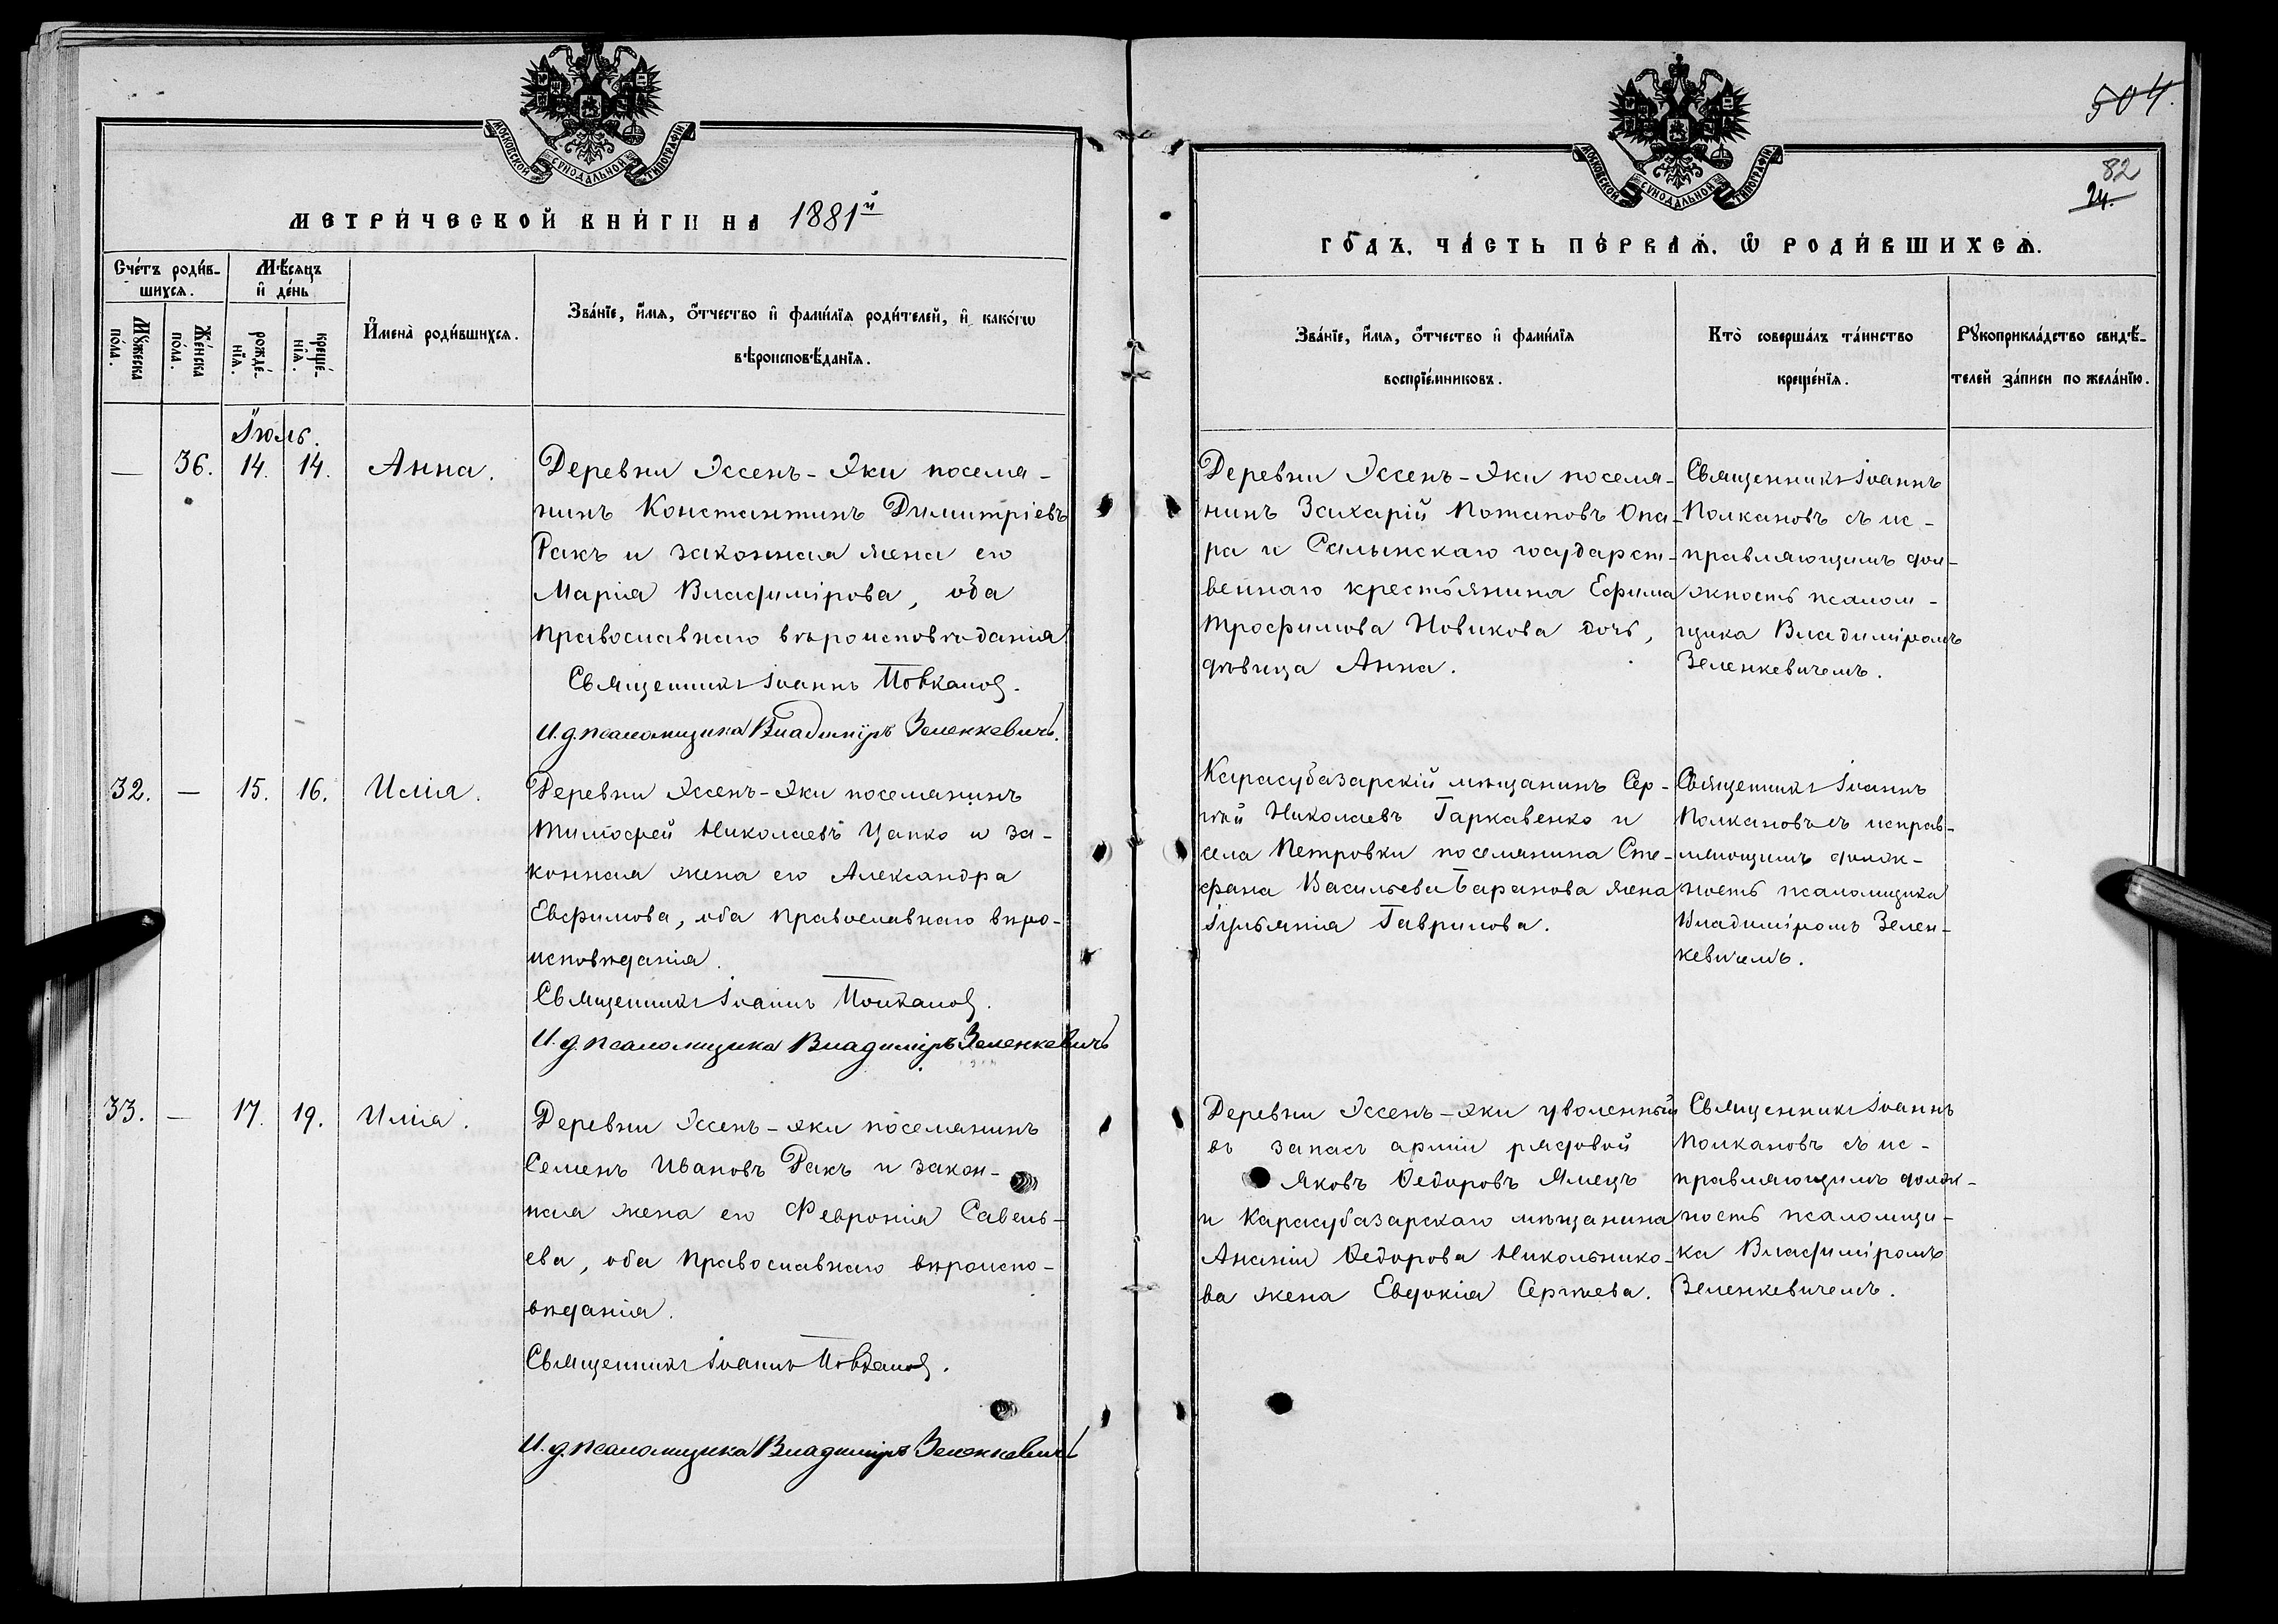 МОСКОВСКОЙ СѴНОДАЛЬНОЙ ТИПОГРАФІИ
МЕТРИ́ЧЕСКОЙ КНИ́ГИ НА 1881й
Сче́тъ роди́в-
шихся.
Мꙋжеска
по́ла.
Же́нска
по́ла.
Мѣ́сяцъ
и де́нь
рожде́-
нїя.
креще́-
нїя.
И҆мена̀ роди́вшихся.
Зва́нїе, и҆́мя, о҆́тчество и҆ фами́лїя роди́телей, и҆ како́гѡ
вѣроисповѣ́данїя.
Іюль.
— 36. 14. 14. Анна.
Деревни Эссенъ-Эки поселя-
нинъ Константинъ Димитріевъ
Ракъ и законная жена его
Марія Владимірова, оба
православнаго вѣроисповѣданія
Священникъ Іоаннъ Полкановъ.
И.д. псаломщика Владиміръ Зеленкевичъ.
32. — 15. 16. Илія.
Деревни Эссенъ-Эки поселянинъ
Тимофей Николаевъ Цапко и за-
конная жена его Александра
Евфимова, оба православнаго вѣро-
исповѣданія.
Священникъ Іоаннъ Полкановъ.
И.д. псаломщика Владиміръ Зеленкевичъ
33. — 17. 19. Илія.
Деревни Эссенъ-Эки поселянинъ
Семенъ Ивановъ Ракъ и закон-
ная жена его Февронія Савель-
ева, оба православнаго вѣроиспо-
вѣданія.
Священникъ Іоаннъ Полкановъ.
И.д. псаломщика Владиміръ Зеленкевичъ
504.
82
24.
МОСКОВСКОЙ СѴНОДАЛЬНОЙ ТИПОГРАФІИ
ГО́ДЪ, ЧА́СТЬ ПЕ́РВАѦ, Ѡ҆ РОДИ́ВШИХСѦ.
Зва́нїе, и҆́мя, о҆́тчество и҆ фами́лїя
воспрїе́мниковъ.
Кто̀ соверша́лъ та́инство
креще́нїя.
Рꙋкоприкла́дство свидѣ́-
телей за́писи по жела́нїю.
Деревни Эссенъ-Эки поселя-
нинъ Захарій Потаповъ Опа-
ра и Салынскаго государст-
веннаго крестьянина Ефима
Трофимова Новикова дочь,
дѣвица Анна.
Священникъ Іоаннъ
Полкановъ съ ис-
правляющимъ дол-
жность псалом-
щика Владиміромъ
Зеленкевичемъ.
Карасубазарскій мѣщанинъ Сер-
гѣй Николаевъ Гаркавенко и
села Петровки поселянина Сте-
фана Васильева Баранова жена
Іульянія Гаврилова.
Священникъ Іоаннъ
Полкановъ съ исправ-
ляющимъ долж-
ность псаломщика
Владиміромъ Зелен-
кевичемъ.
Деревни Эссенъ-Эки уволенный
въ запасъ арміи рядовой
Яковъ Ѳедоровъ Ямецъ
и Карасубазарскаго мѣщанина
Ананіи Ѳедорова Никольнико-
ва жена Евдокія Сергѣева.
Священникъ Іоаннъ
Полкановъ съ ис-
правляющимъ долж-
ность псаломщи-
ка Владиміромъ
Зеленкевичемъ.